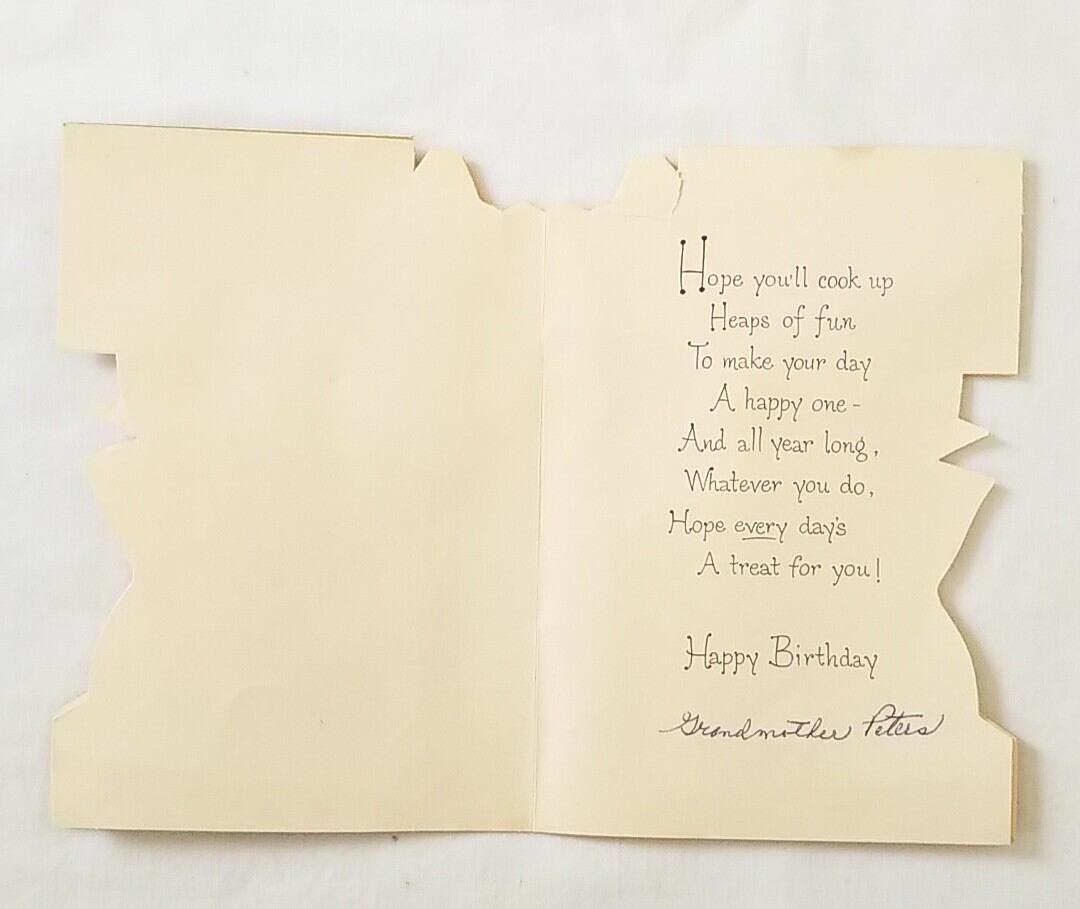 Hope you'll cook up
Heaps of fun
To make your day
A happy one-
And all year long,
Whatever you do,
Hope every day's
A treat for you!
Happy Birthday
Grandmother Peters